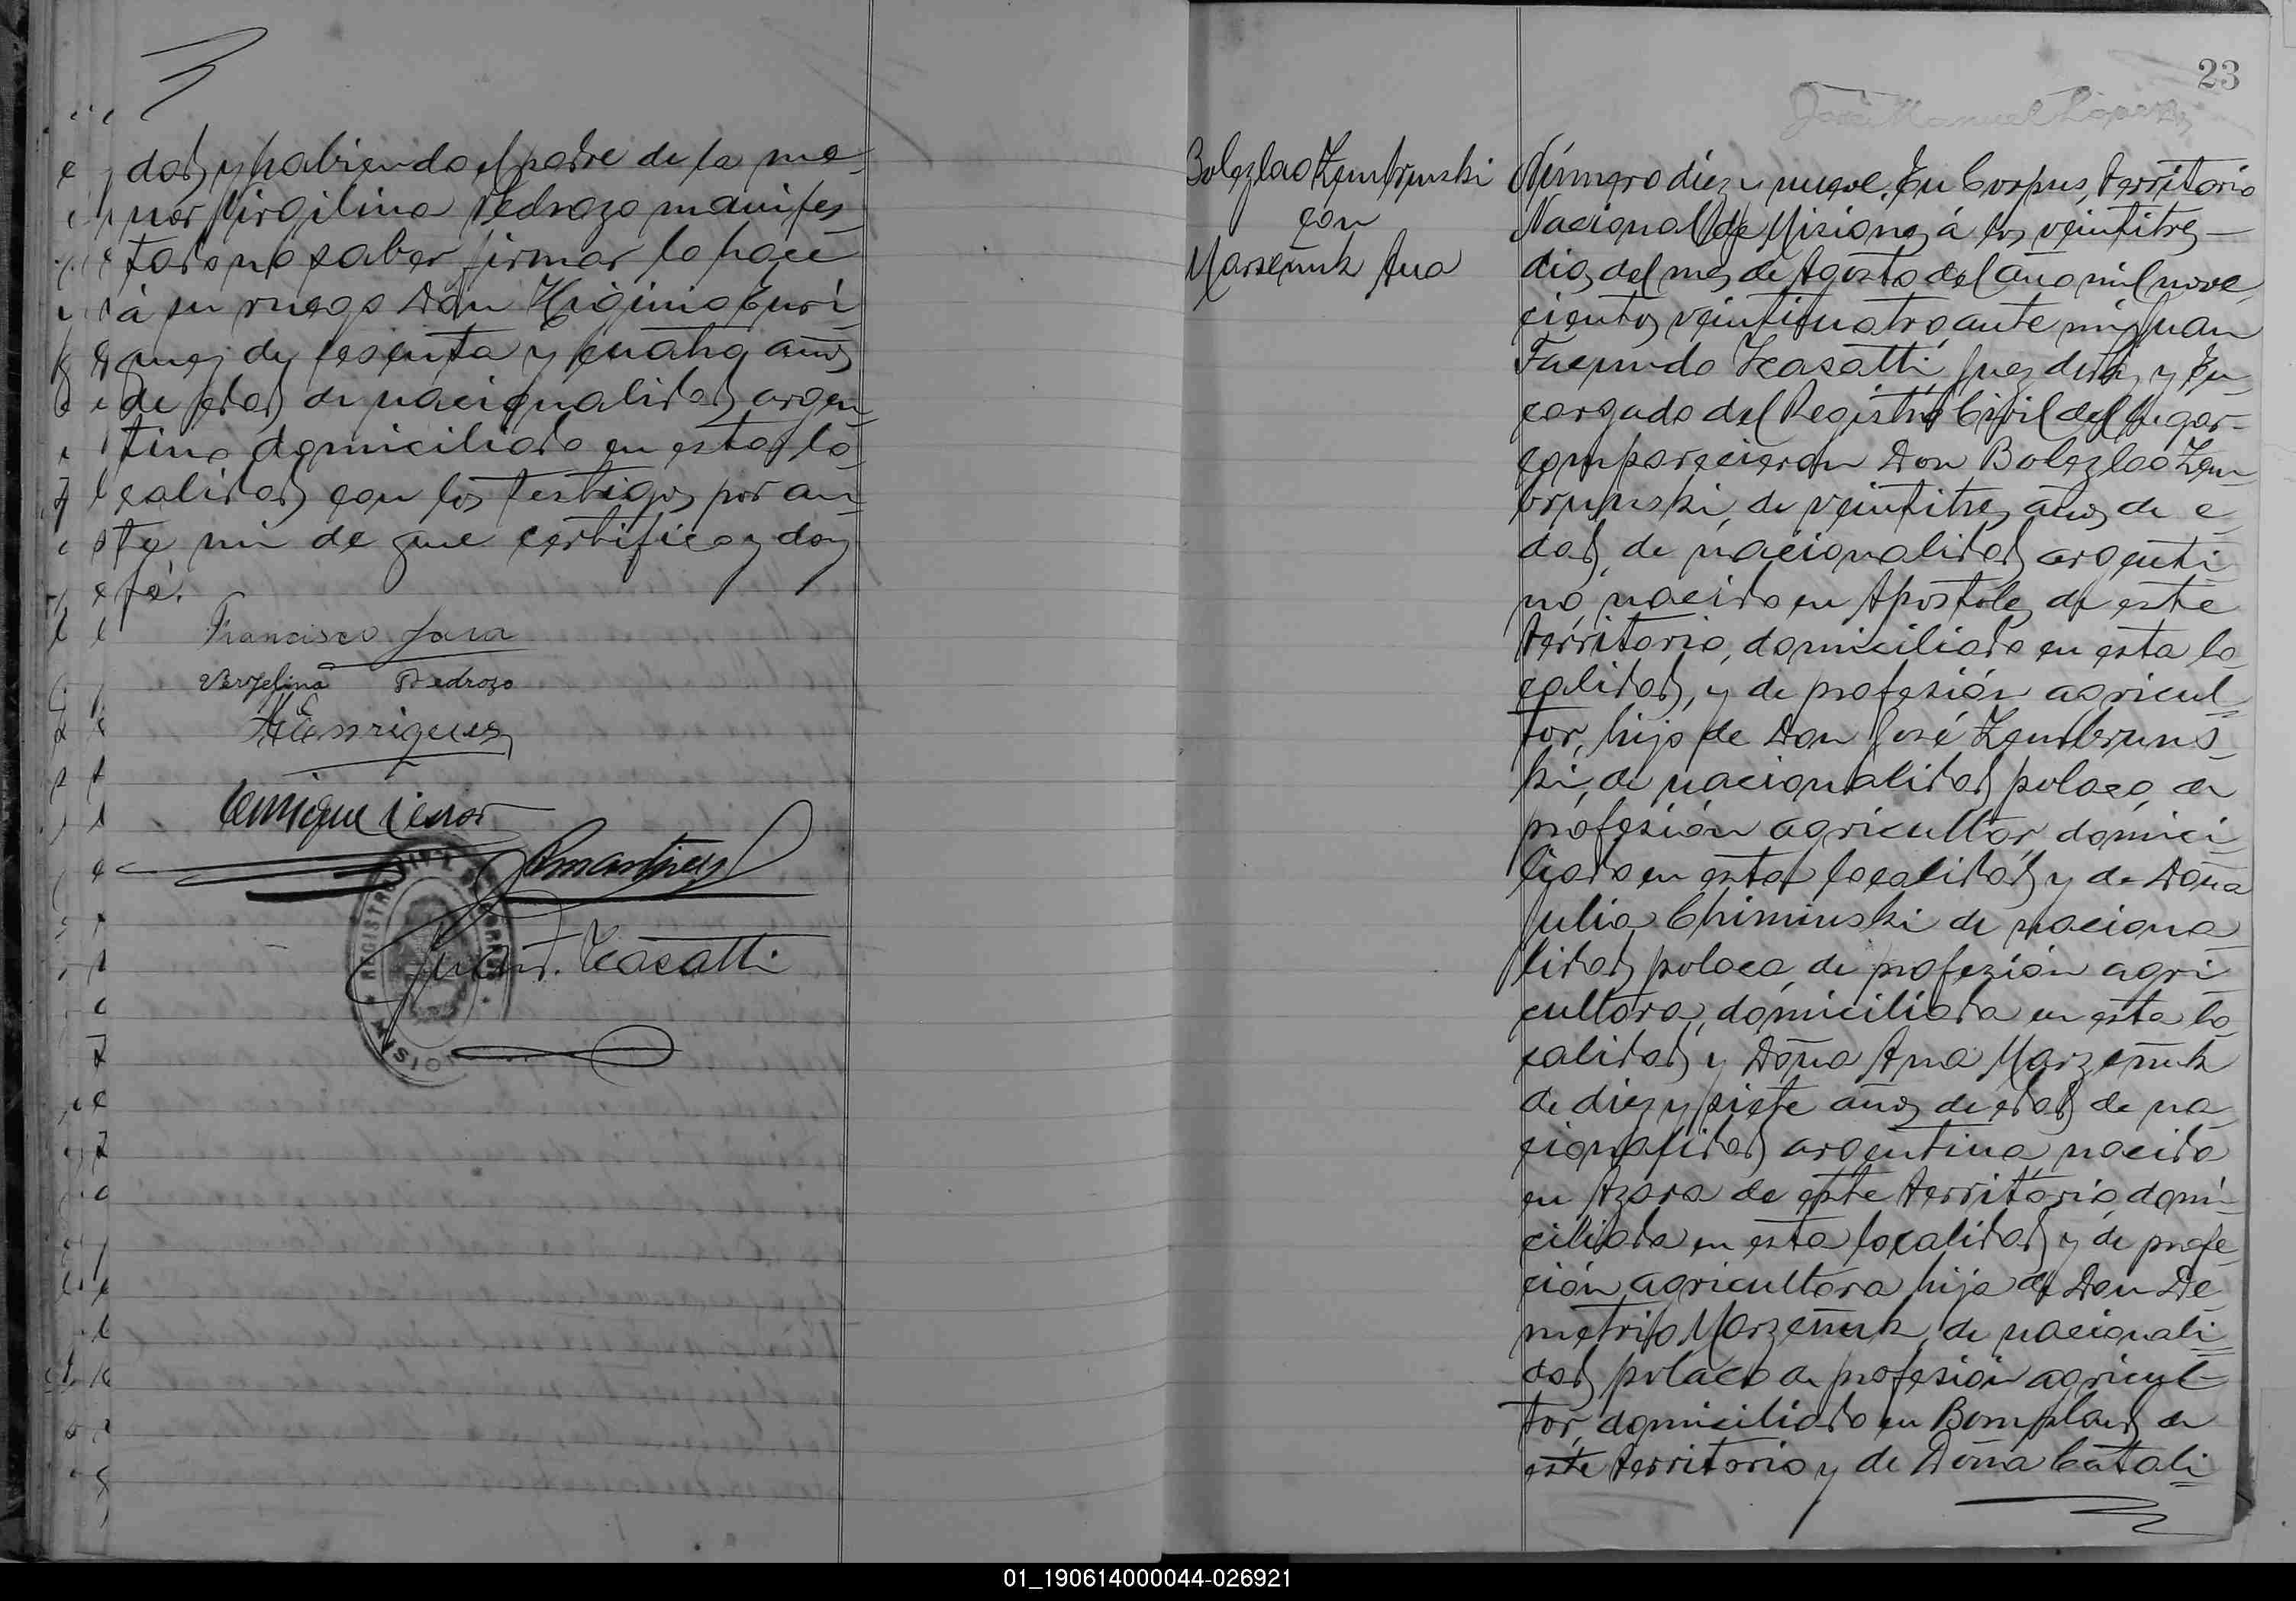 dad, y habiendo el padre de la me-
nor Virgilina Pedrozo manifes-
tado no saber firmar lo hace
á su ruego Don Higinio Enri-
quez de sesenta y cuatro años
de edad de nacionalidad argen-
tina domiciliado en esta lo-
calidad con los testigos por an-
te mi de que certifico y doy
fé.
Francisco Jara
Verjelina Pedrozo
HEnriquez
Enrique
RMartinez
Juan F. Casatti
REGISTRO CIVIL
23
José Manuel Lopez
Bolezlao Zembrunski
con
Marzeñuk Ana
Número diez y nueve. En Corpus, territorio
Nacional de Misiones, á los veintitres
dias del mes de Agosto del año mil nove-
cientos veinticuatro, ante mi, Juan
Facundo Casatti, Juez de Paz y En-
cargado del Registro Civil del lugar
comparecieron Don Bolezlao Zem-
brunski, de veintitres años de e-
dad, de nacionalidad argenti-
no, nacido en Apostoles de este
territorio, domiciliado en esta lo-
calidad, y de profesión agricul-
tor, hijo de Don José Zembruns-
ki, de nacionalidad polaco, de
profesión agricultor domici-
liado en esta localidad y de Doña
Julia Chiminski de naciona-
lidad polaca, de profezión agri-
cultora, domiciliada en esta lo-
calidad, y Doña Ana Marzeñuk
de diez y siete años de edad de na-
cionalidad argentina, nacida
en Azara de este territorio, domi-
ciliada en esta localidad y de profe-
ción agricultora hija de Don De-
metrio Marzeñuk, de nacionali-
dad polaco de profesión agricul-
tor, domiciliado en Bompland de
este territorio y de Doña Catali-
01_190614000044-026921